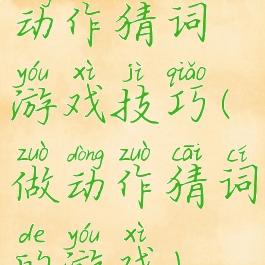 动作猜词
yóu xì jì qiǎo
游戏技巧(
zuò dòng zuò cāi cí
做动作猜词
de yóu xì
的游戏)